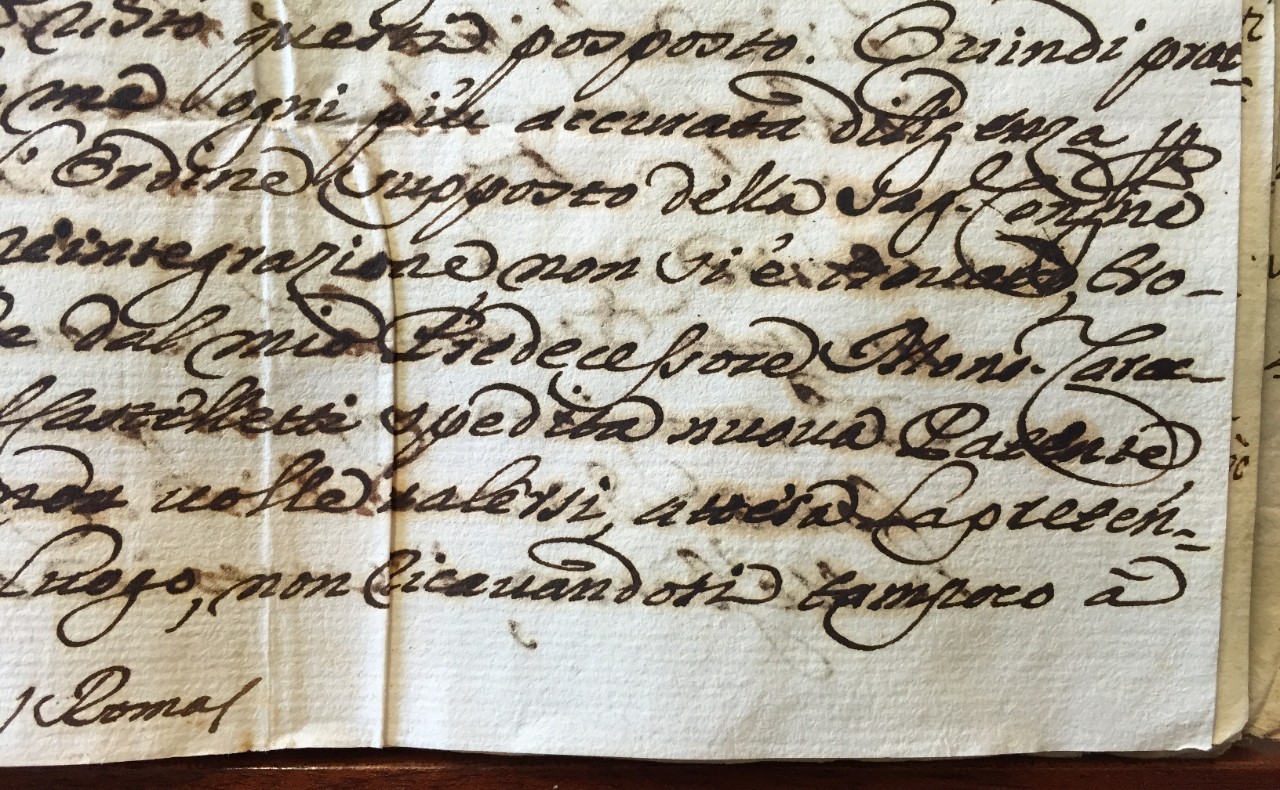 questa posposto. Quindi prat=
me ogni più accurata diligenza
Ordine supposto della Sag. Conṅe
reintegrazione non si è trovato, Bro-
dal mio Predecessore Mons. Carac-
spedita nuova Patente,
non volle valersi, attesa la preten=
Luogo, non ricavandosi tampoco à
Roma